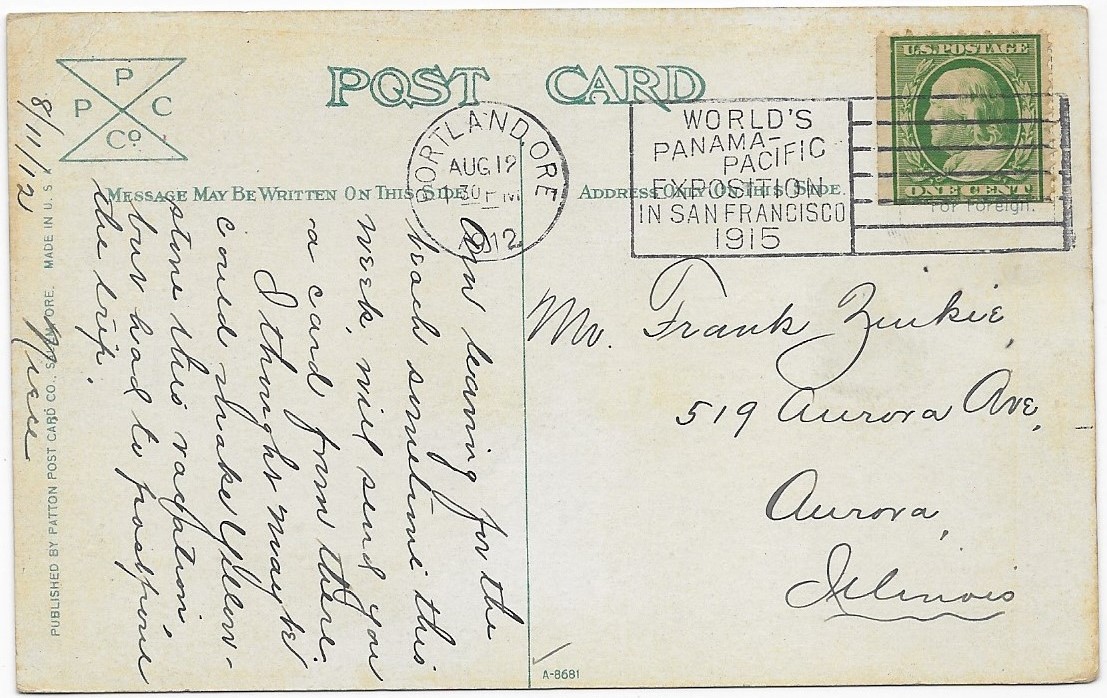 POST CARD
P
P C
Co.
MESSAGE MAY BE WRITTEN ON THIS SIDE.
ADDRESS ONLY ON THIS SIDE.
PORTLAND, ORE
AUG 12
1 30 PM
1912
WORLD'S
PANAMA-
PACIFIC
EXPOSITION
IN SAN FRANCISCO
1915
U.S. POSTAGE
ONE CENT
For Foreign.
8/11/12
Am leaving for the
beach sometime this
week, will send you
a card from there.
I thought maybe I
could make Yellow-
stone this vacation,
but had to postpone
the trip.
Mr. Frank Zinkie,
519 Aurora Ave,
Aurora,
Illinois
PUBLISHED BY PATTON POST CARD CO., SALEM, ORE. MADE IN U.S.
A-8681